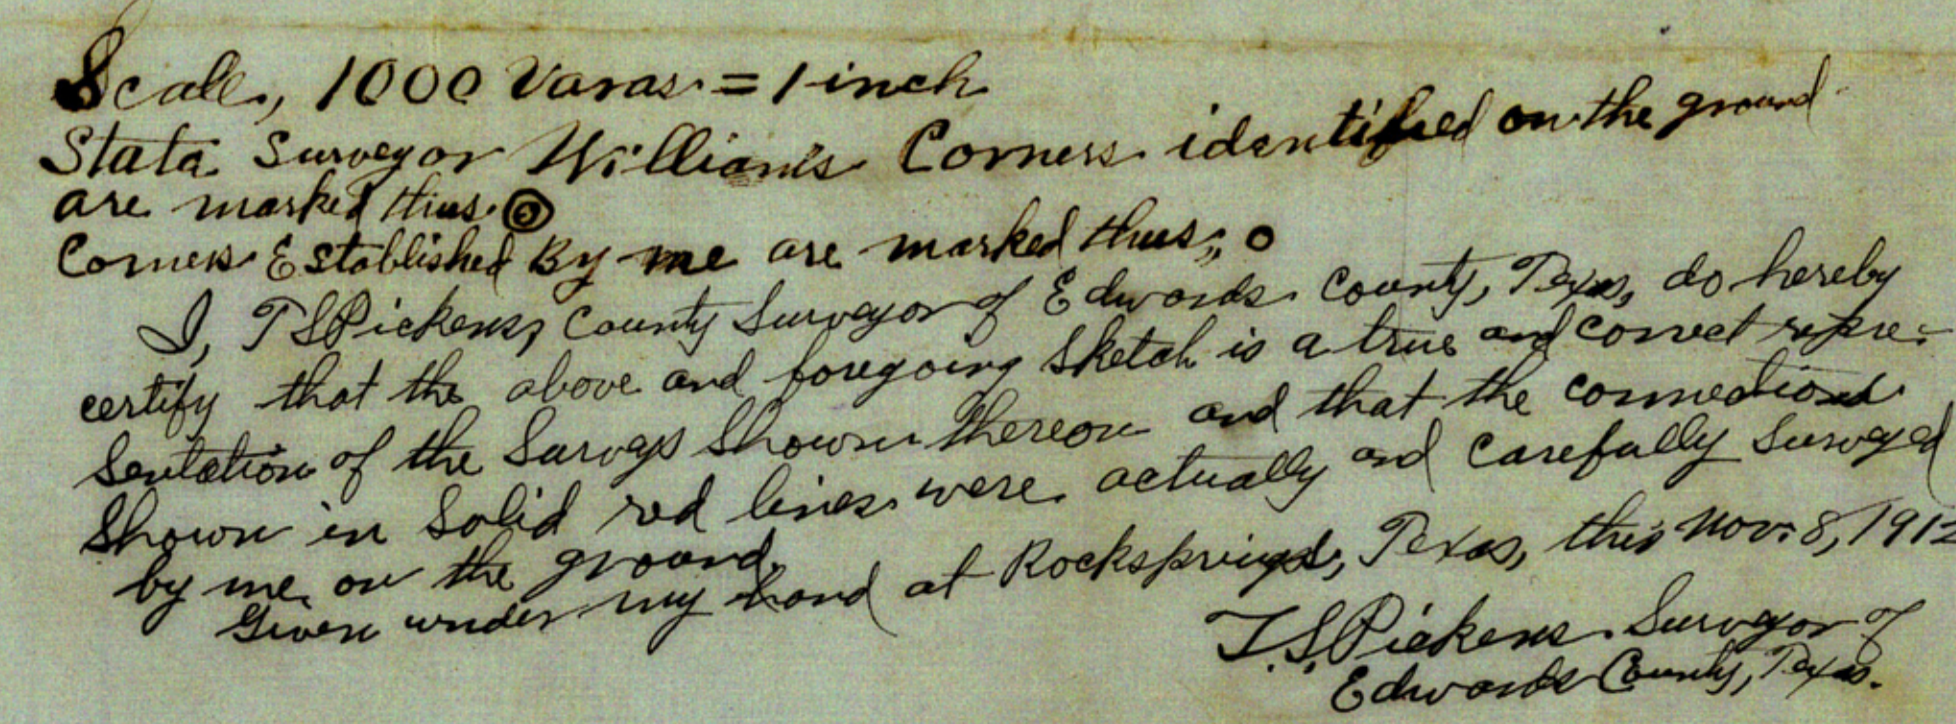 Scale, 1000 Varas = 1 inch
State Surveyor William's Corners identified on the ground
are marked thus. ⊚
Corners Established By me are marked thus, o
I, T S Pickens, County Surveyor of Edwards County, Texas, do hereby
certify that the above and foregoing sketch is a true and correct repre-
sentation of the Surveys Shown thereon and that the connections
shown in solid red lines were actually and carefully surveyed
by me on the ground.
Given under my hand at Rocksprings, Texas, this Nov. 8, 1912
T.S. Pickens Surveyor of
Edwards County, Texas.